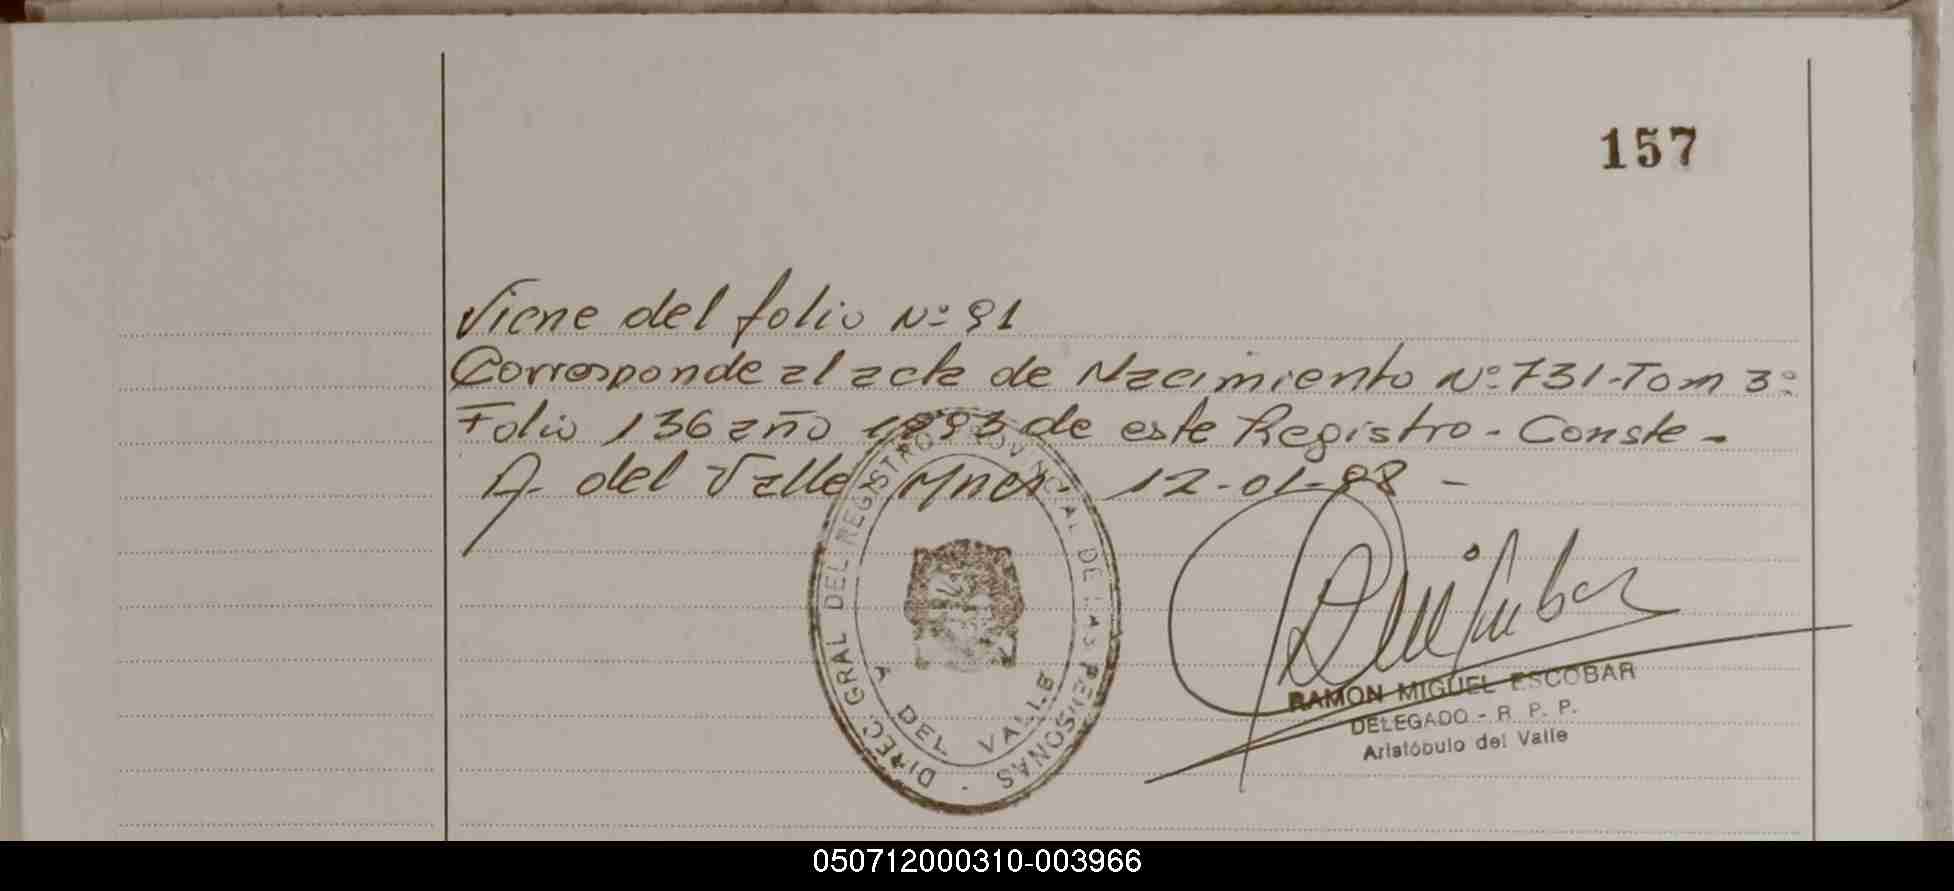 157
Viene del folio Nº 91
Corresponde al acta de Nacimiento Nº 731-Tom 3º
Folio 136 año 1993 de este Registro - Conste -
A. del Valle Mnes 12-01-98 -
DIREC. GRAL DEL REGISTRO PROVINCIAL DE LAS PERSONAS -
A DEL VALLE
RAMON MIGUEL ESCOBAR
DELEGADO - R. P. P.
Aristóbulo del Valle
050712000310-003966